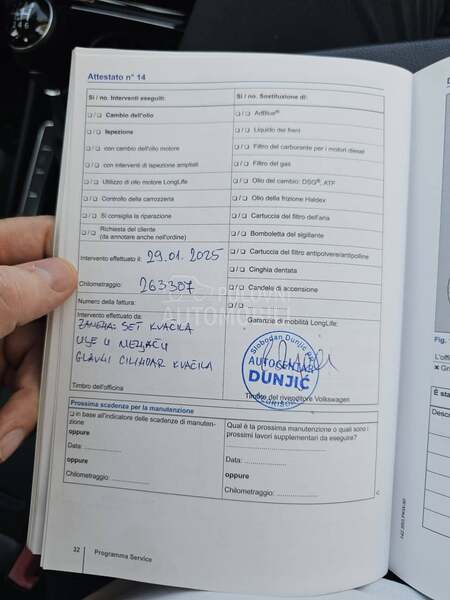 Attestato n° 14
Si / no. Interventi eseguiti:
Si / no. Sostituzione di:
❑ / ❑ Cambio dell'olio
❑ / ❑ AdBlue®
❑ / ❑ Ispezione
❑ / ❑ Liquido dei freni
❑ / ❑ con cambio olio motore
❑ / ❑ Filtro del carburante per i motori diesel
❑ / ❑ con interventi di ispezione ampliati
❑ / ❑ Filtro del gas
❑ / ❑ Utilizzo di olio motore LongLife
❑ / ❑ Olio del cambio: DSG®, ATF
❑ / ❑ Controllo della carrozzeria
❑ / ❑ Olio della frizione Haldex
❑ / ❑ Si consiglia la riparazione
❑ / ❑ Cartuccia del filtro dell'aria
❑ / ❑ Richiesta del cliente
(da annotare anche nell'ordine)
❑ / ❑ Bomboletta del sigillante
❑ / ❑ Cartuccia del filtro antipolvere/antipolline
Intervento effettuato il: 29.01.2025
❑ / ❑ Cinghia dentata
Chilometraggio: 263307
❑ / ❑ Candele di accensione
Numero della fattura:
❑ / ❑
Intervento effettuato da:
Garanzia di mobilità LongLife:
ZAMENA: SET KVAČILA
ULJE U MENJAČU
GLAVNI CILINDAR KVAČILA
Slobodan Dunjić PR
AUTOCENTAR
DUNJIĆ
Timbro dell'officina
Timbro del rivenditore Volkswagen
Prossima scadenza per la manutenzione
❑ in base all'indicatore delle scadenze di manutenzione
oppure
Data:
oppure
Chilometraggio:
Qual è la prossima manutenzione o quali i prossimi lavori supplementari da eseguire?
Data:
oppure
Chilometraggio:
32 Programma Service
POLOVNI
AUTOMOBILI
Fig.
L'offi
È sta
Descr